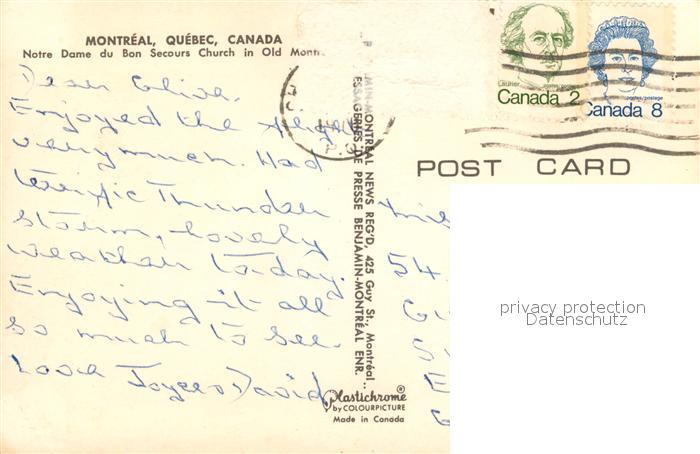 MONTRÉAL, QUÉBEC, CANADA
Notre Dame du Bon Secours Church in Old Montr
Dear Olive,
Enjoyed the
very much. Had
terrific Thunder
storm, lovely
weather today.
Enjoying it all
so much to see.
Love Joyce & David
MIN-MONTREAL NEWS REG'D, 425 Guy St., Montréal
ESSAGERIES DE PRESSE BENJAMIN-MONTRÉAL ENR.
Plastichrome®
by COLOURPICTURE
Made in Canada
Laurier
Canada 2
postes/postage
Canada 8
POST CARD
54
privacy protection
Datenschutz